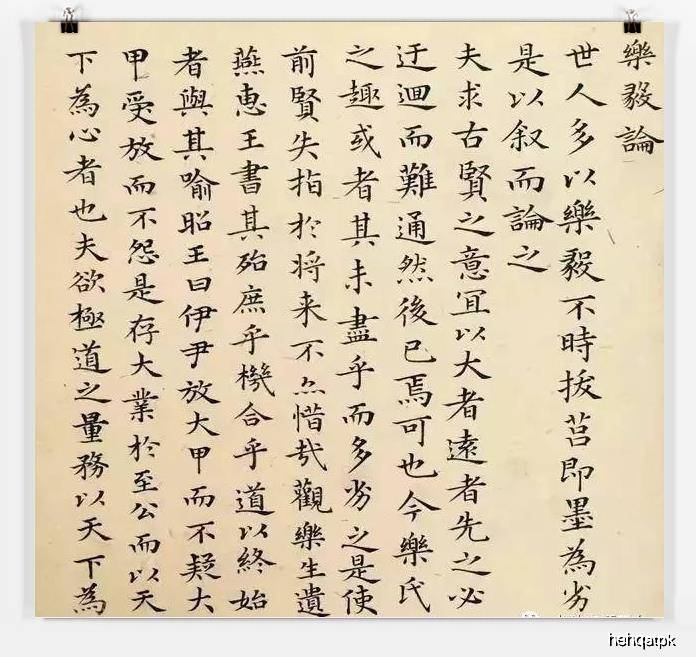 樂毅論
世人多以樂毅不時拔莒即墨為劣
是以叙而論之
夫求古賢之意宜以大者遠者先之必
迂迴而難通然後已焉可也今樂氏
之趣或者其未盡乎而多劣之是使
前賢失指於将来不亦惜哉觀樂生遺
燕惠王書其殆庶乎機合乎道以終始
者與其喻昭王曰伊尹放大甲而不疑大
甲受放而不怨是存大業於至公而以天
下為心者也夫欲極道之量務以天下為
hehqatpk